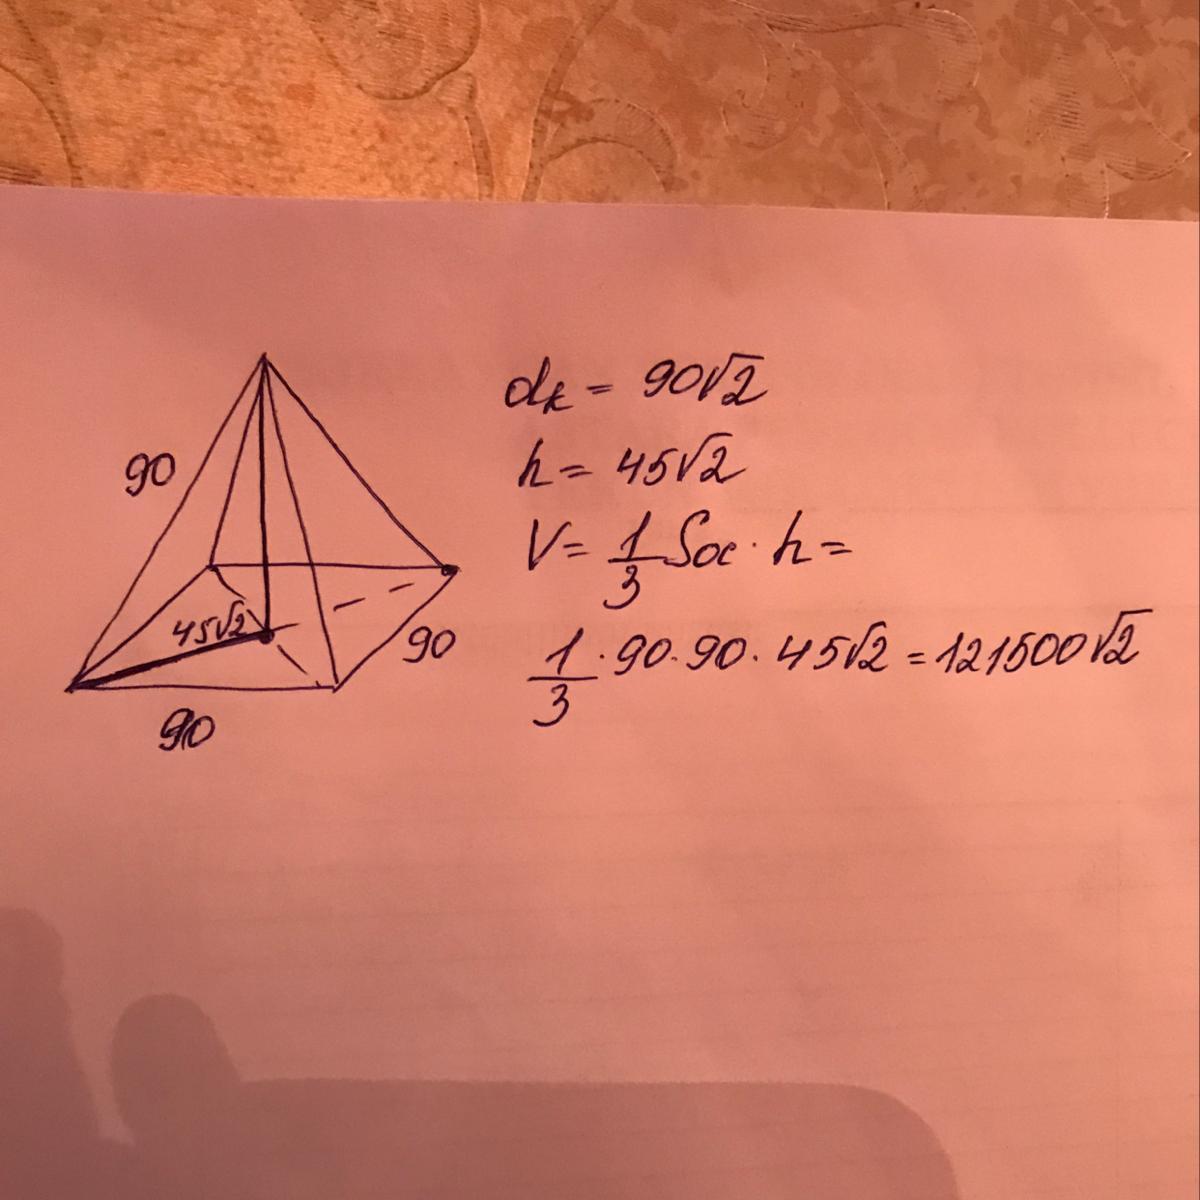 90
45√2
90
90
dк = 90√2
h = 45√2
V = 1/3 Sос · h =
1/3 · 90 · 90 · 45√2 = 121500√2